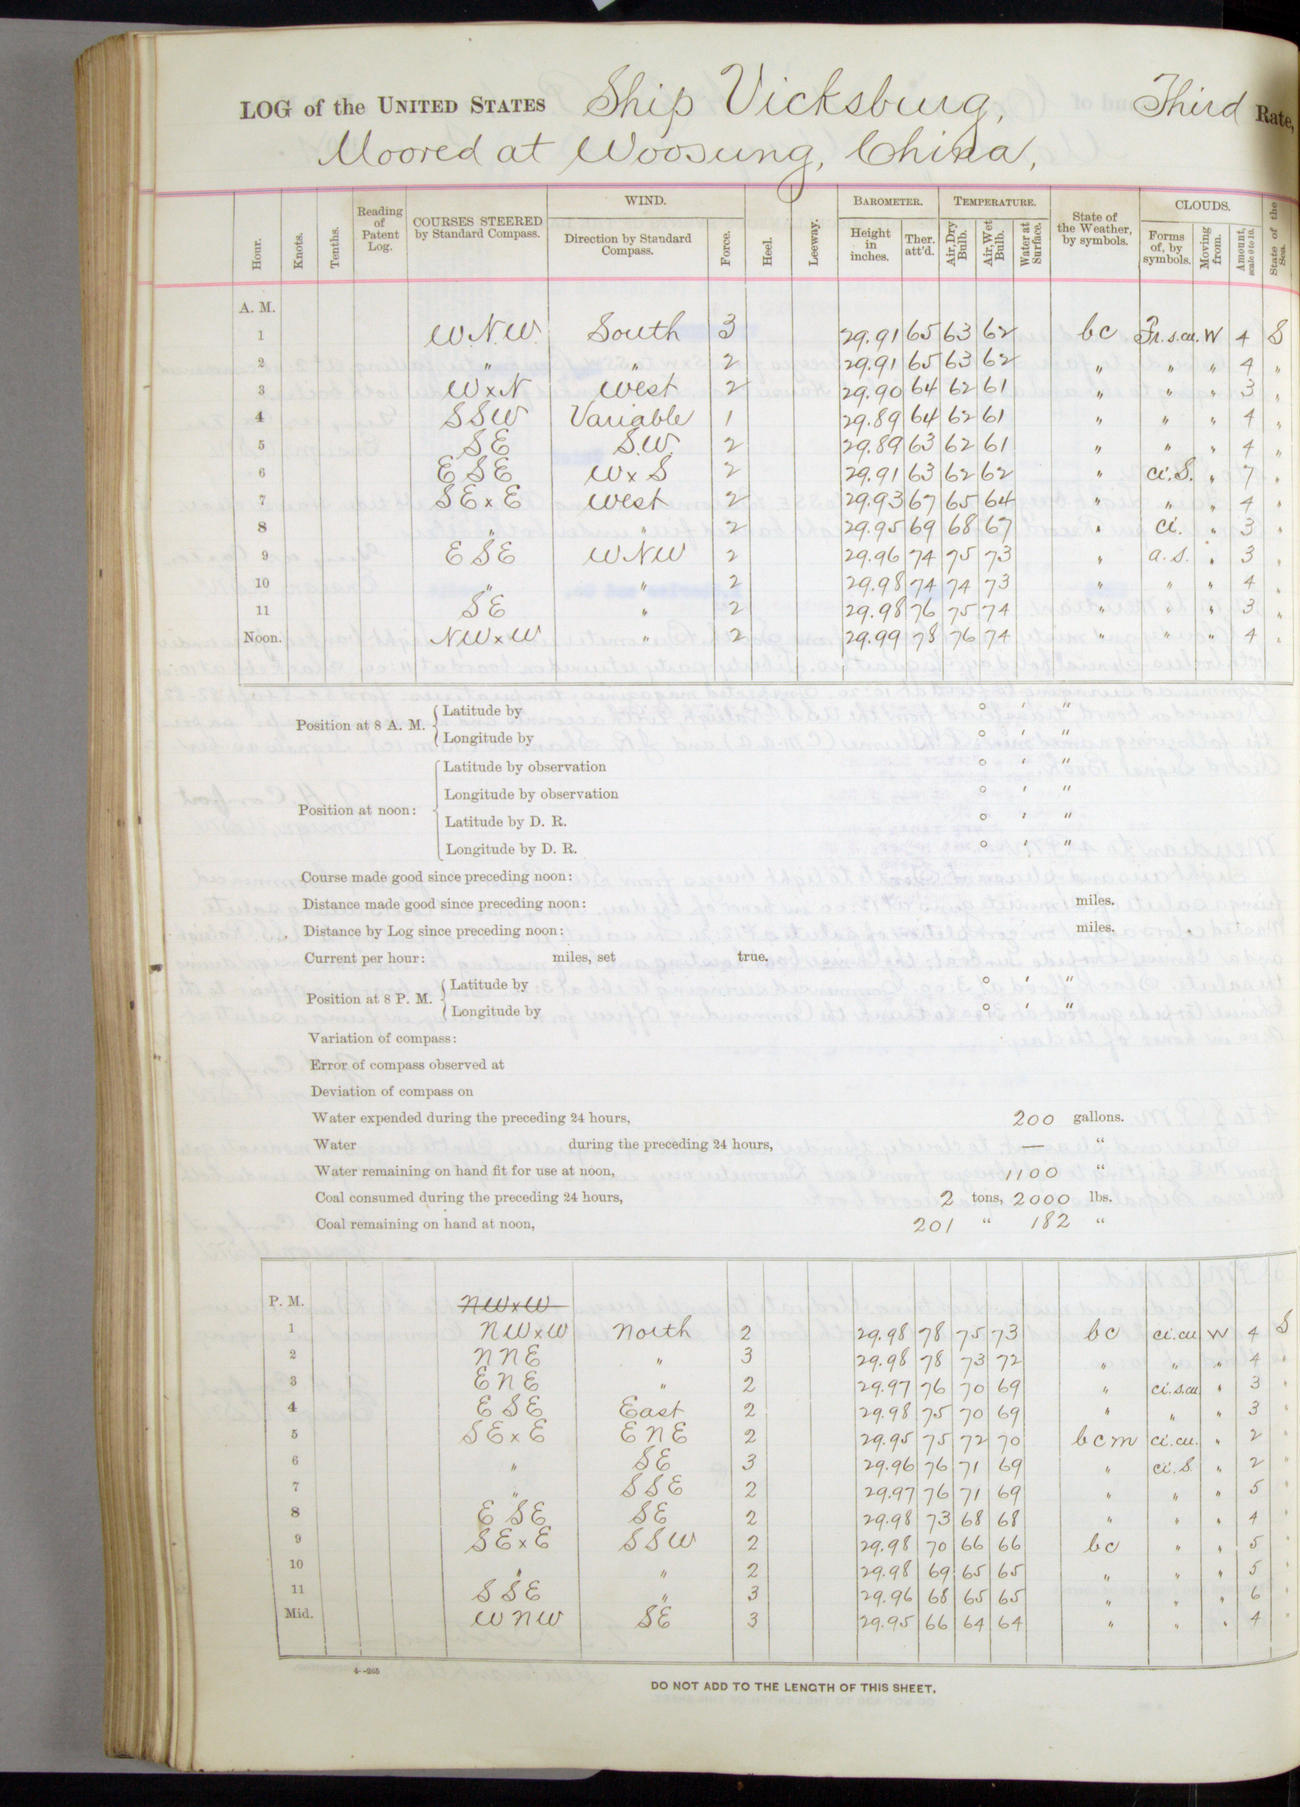 LOG of the UNITED STATES Ship Vicksburg, Third Rate,
Moored at Woosung, China,
Hour. Knots. Tenths. Reading of Patent Log. COURSES STEERED by Standard Compass. WIND. Direction by Standard Compass. Force. Heel. Leeway. BAROMETER. Height in inches. Ther. att'd. TEMPERATURE. Air, Dry Bulb. Air, Wet Bulb. Water at Surface. State of the Weather, by symbols. CLOUDS. Forms of, by symbols. Moving from. Amount, scale 0 to 10. State of the Sea.
A. M.
1 W.N.W. South 3 29.91 65 63 62 bc Fr.s.cu. W 4 S
2 " " 2 29.91 65 63 62 " " " 4 "
3 WxN West 2 29.90 64 62 61 " " " 3 "
4 SSW Variable 1 29.89 64 62 61 " " " 4 "
5 SE S.W. 2 29.89 63 62 61 " " " 4 "
6 ESE WxS 2 29.91 63 62 62 " ci.S. " 7 "
7 SExE West 2 29.93 67 65 64 " " " 4 "
8 " " 2 29.95 69 68 67 " ci. " 3 "
9 ESE WNW 2 29.96 74 75 73 " a.s. " 3 "
10 " " 2 29.98 74 74 73 " " " 4 "
11 SE " 2 29.98 76 75 74 " " " 3 "
Noon. NWxW " 2 29.99 78 76 74 " " " 4 "
Position at 8 A. M. Latitude by ° ' "
Longitude by ° ' "
Position at noon: Latitude by observation ° ' "
Longitude by observation ° ' "
Latitude by D. R. ° ' "
Longitude by D. R. ° ' "
Course made good since preceding noon:
Distance made good since preceding noon: miles.
Distance by Log since preceding noon: miles.
Current per hour: miles, set true.
Position at 8 P. M. Latitude by ° ' "
Longitude by ° ' "
Variation of compass:
Error of compass observed at
Deviation of compass on
Water expended during the preceding 24 hours, 200 gallons.
Water during the preceding 24 hours, — "
Water remaining on hand fit for use at noon, 1100 "
Coal consumed during the preceding 24 hours, 2 tons, 2000 lbs.
Coal remaining on hand at noon, 201 " 182 "
P. M. NWxW
1 NWxW North 2 29.98 78 75 73 bc ci.cu W 4 S
2 NNE " 3 29.98 78 73 72 " " " 4 "
3 ENE " 2 29.97 76 70 69 " ci.s.cu. " 3 "
4 ESE East 2 29.98 75 70 69 " " " 3 "
5 SExE ENE 2 29.95 75 72 70 bcm ci.cu. " 2 "
6 " SE 3 29.96 76 71 69 " ci.S. " 2 "
7 " SSE 2 29.97 76 71 69 " " " 5 "
8 ESE SE 2 29.98 73 68 68 " " " 4 "
9 SExE SSW 2 29.98 70 66 66 bc " " 5 "
10 " " 2 29.98 69 65 65 " " " 5 "
11 SSE " 3 29.96 68 65 65 " " " 6 "
Mid. WNW SE 3 29.95 66 64 64 " " " 4 "
4--265
DO NOT ADD TO THE LENGTH OF THIS SHEET.